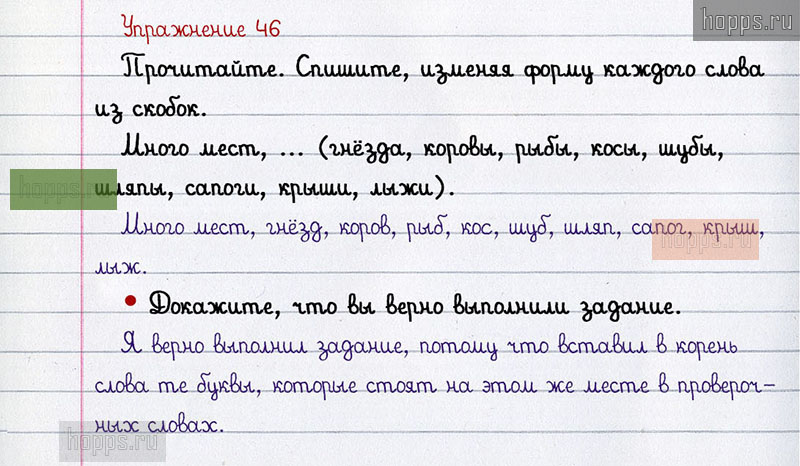 Упражнение 46
hopps.ru
Прочитайте. Спишите, изменяя форму каждого слова
из скобок.
Много мест, ... (гнёзда, коровы, рыбы, косы, шубы,
hopps.ru
шляпы, сапоги, крыши, лыжи).
Много мест, гнёзд, коров, рыб, кос, шуб, шляп, сапог, крыш,
hopps.ru
лыж.
• Докажите, что вы верно выполнили задание.
Я верно выполнил задание, потому что вставил в корень
слова те буквы, которые стоят на этом же месте в провероч-
ных словах.
hopps.ru